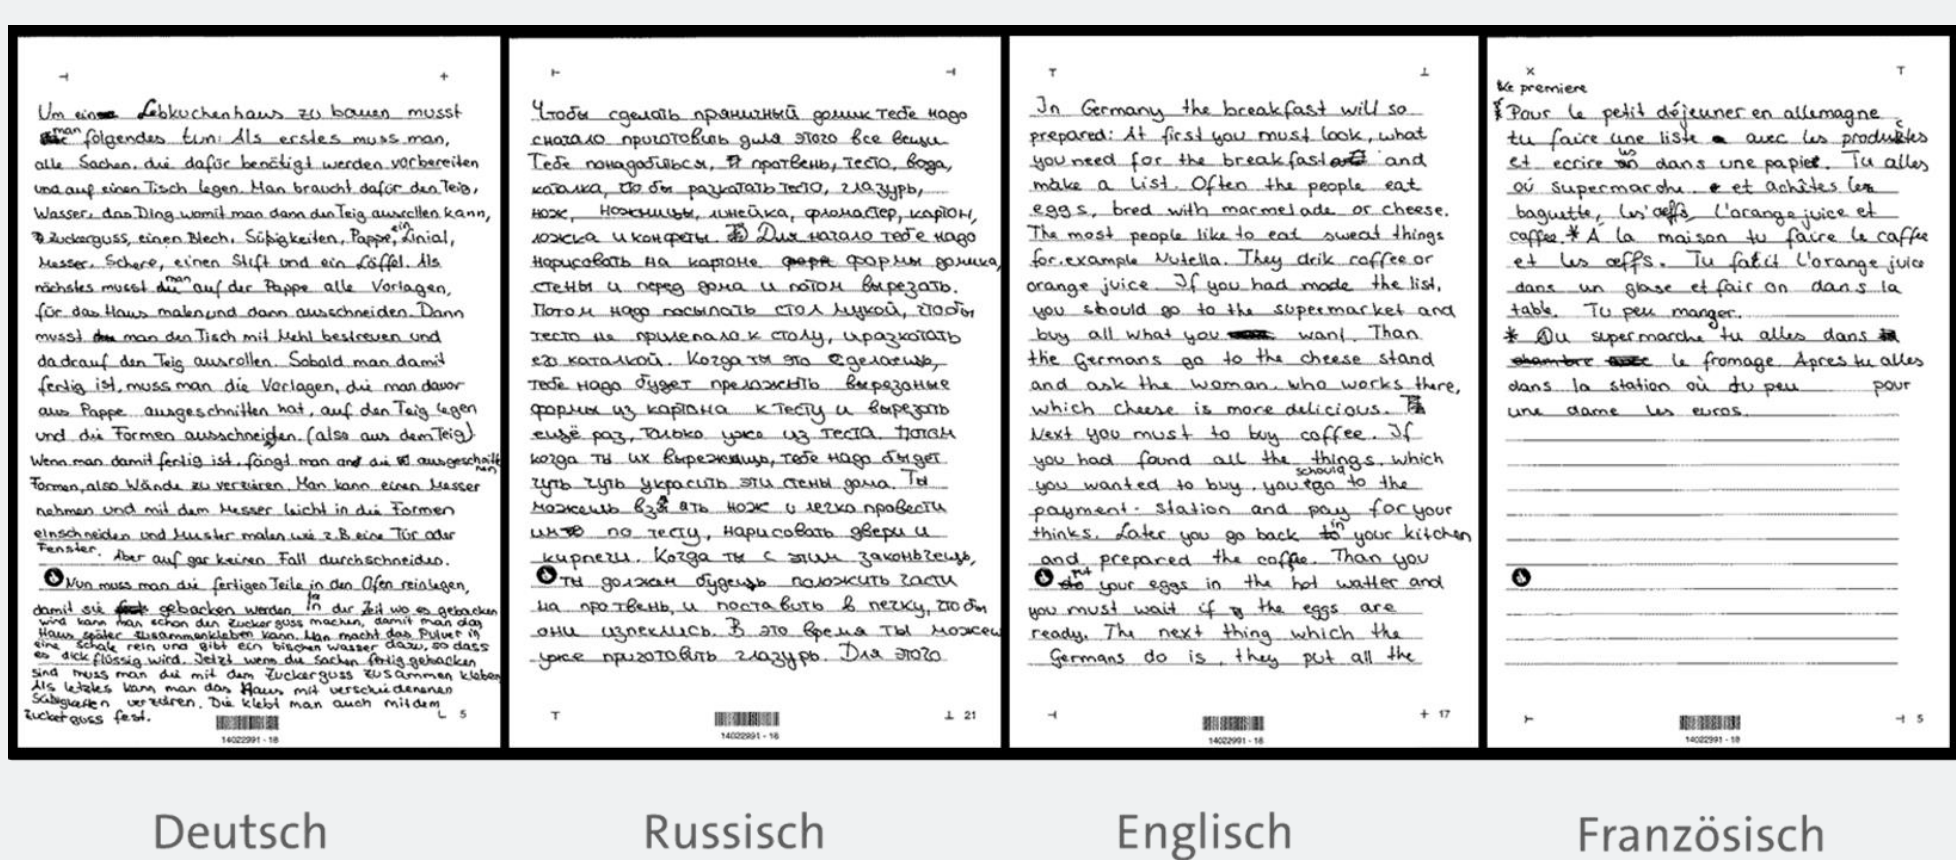 Um ein Lebkuchenhaus zu bauen musst
man folgendes tun: Als erstes muss man,
alle Sachen, die dafür benötigt werden vorbereiten
und auf einen Tisch legen. Man braucht dafür den Teig,
Wasser, das Ding womit man dann den Teig ausrollen kann,
Zuckerguss, einen Blech, Süßigkeiten, Pappe, ein Linial,
Messer, Schere, einen Stift und ein Löffel. Als
nächstes musst man auf der Pappe alle Vorlagen,
für das Haus malen und dann ausschneiden. Dann
musst man den Tisch mit Mehl bestreuen und
dadrauf den Teig ausrollen. Sobald man damit
fertig ist, muss man die Vorlagen, die man davor
aus Pappe ausgeschnitten hat, auf den Teig legen
und die Formen ausschneiden. (also aus dem Teig)
Wenn man damit fertig ist, fängt man and die ausgeschnittnen
Formen, also Wände zu verzüren. Man kann einen Messer
nehmen und mit dem Messer leicht in die Formen
einschneiden und Muster malen, wie z.B. eine Tür oder
Fenster. Aber auf gar keinen Fall durchschneiden.
Nun muss man die fertigen Teile in den Ofen reinlegen,
damit sie gebacken werden. In der Zeit wo es gebacken
wird kann man schon den Zuckerguss machen, damit man das
Haus später zusammenkleben kann. Man macht das Pulver in
eine Schale rein und gibt ein bischen Wasser dazu, so dass
es dick flüssig wird. Jetzt wenn die Sachen fertig gebacken
sind muss man die mit dem Zuckerguss zusammen kleben
Als letztes kann man das Haus mit verschiedenenen
Süßigkeiten verzüren. Die klebt man auch mit dem
Zuckerguss fest.
5
14022991 - 18
Чтобы сделать праничный домик тебе надо
сначало приготовить для этого все вещи
Тебе понадобиться, протвень, тесто, вода,
каталка, что бы разкатать тесто, глазурь,
нож, ножницы, линейка, фломастер, картон,
ложка и конфеты. Для начало тебе надо
нарисовать на картоне формы домика,
стены и перед дома и потом вырезать.
Потом надо посыпать стол мукой, чтобы
тесто не прилепало к столу, и разкотать
его каталкой. Когда ты это сделаешь,
тебе надо будет преложыть вырезаные
формы из картона к тесту и вырезать
ещё раз, только уже из теста. Потом
когда ты их вырежишь, тебе надо быдет
чуть чуть украсить эти стены дома. Ты
можешь взять нож и легко провести
им по тесту, нарисовать двери и
кирпечи. Когда ты с этим законьчешь,
ты должан будешь положить части
на протвень, и поставить в печку, что бы
они испеклись. В это время ты можеш
уже приготовить глазурь. Для этого
21
14022991 - 18
In Germany the breakfast will so
prepared: At first you must look, what
you need for the breakfast and
make a list. Often the people eat
eggs, bred with marmelade or cheese.
The most people like to eat sweat things
for example Nutella. They drik coffee or
orange juice. If you had made the list,
you should go to the supermarket and
buy all what you want. Than
the Germans go to the cheese stand
and ask the woman, who works there,
which cheese is more delicious.
Next you must to buy coffee. If
you had found all the things, which
you wanted to buy, you schould go to the
payment-station and pay for your
thinks. Later you go back in your kitchen
and prepared the coffie. Than you
put your eggs in the hot watter and
you must wait if the eggs are
ready. The next thing which the
Germans do is, they put all the
17
14022991 - 18
premiere
Pour le petit déjeuner en allemagne
tu faire une liste avec les produktes
et ecrire les dans une papier. Tu alles
où supermarche et achètes les
baguette, les œffs, l'orange juice et
caffee. * À la maison tu faire le caffee
et les œffs. Tu fait l'orange juice
dans un glase et fair on dans la
table. Tu peu manger.
* Ou supermarche tu alles dans
le fromage. Apres tu alles
dans la station où tu peu pour
une dame les euros.
5
14022991 - 18
Deutsch
Russisch
Englisch
Französisch